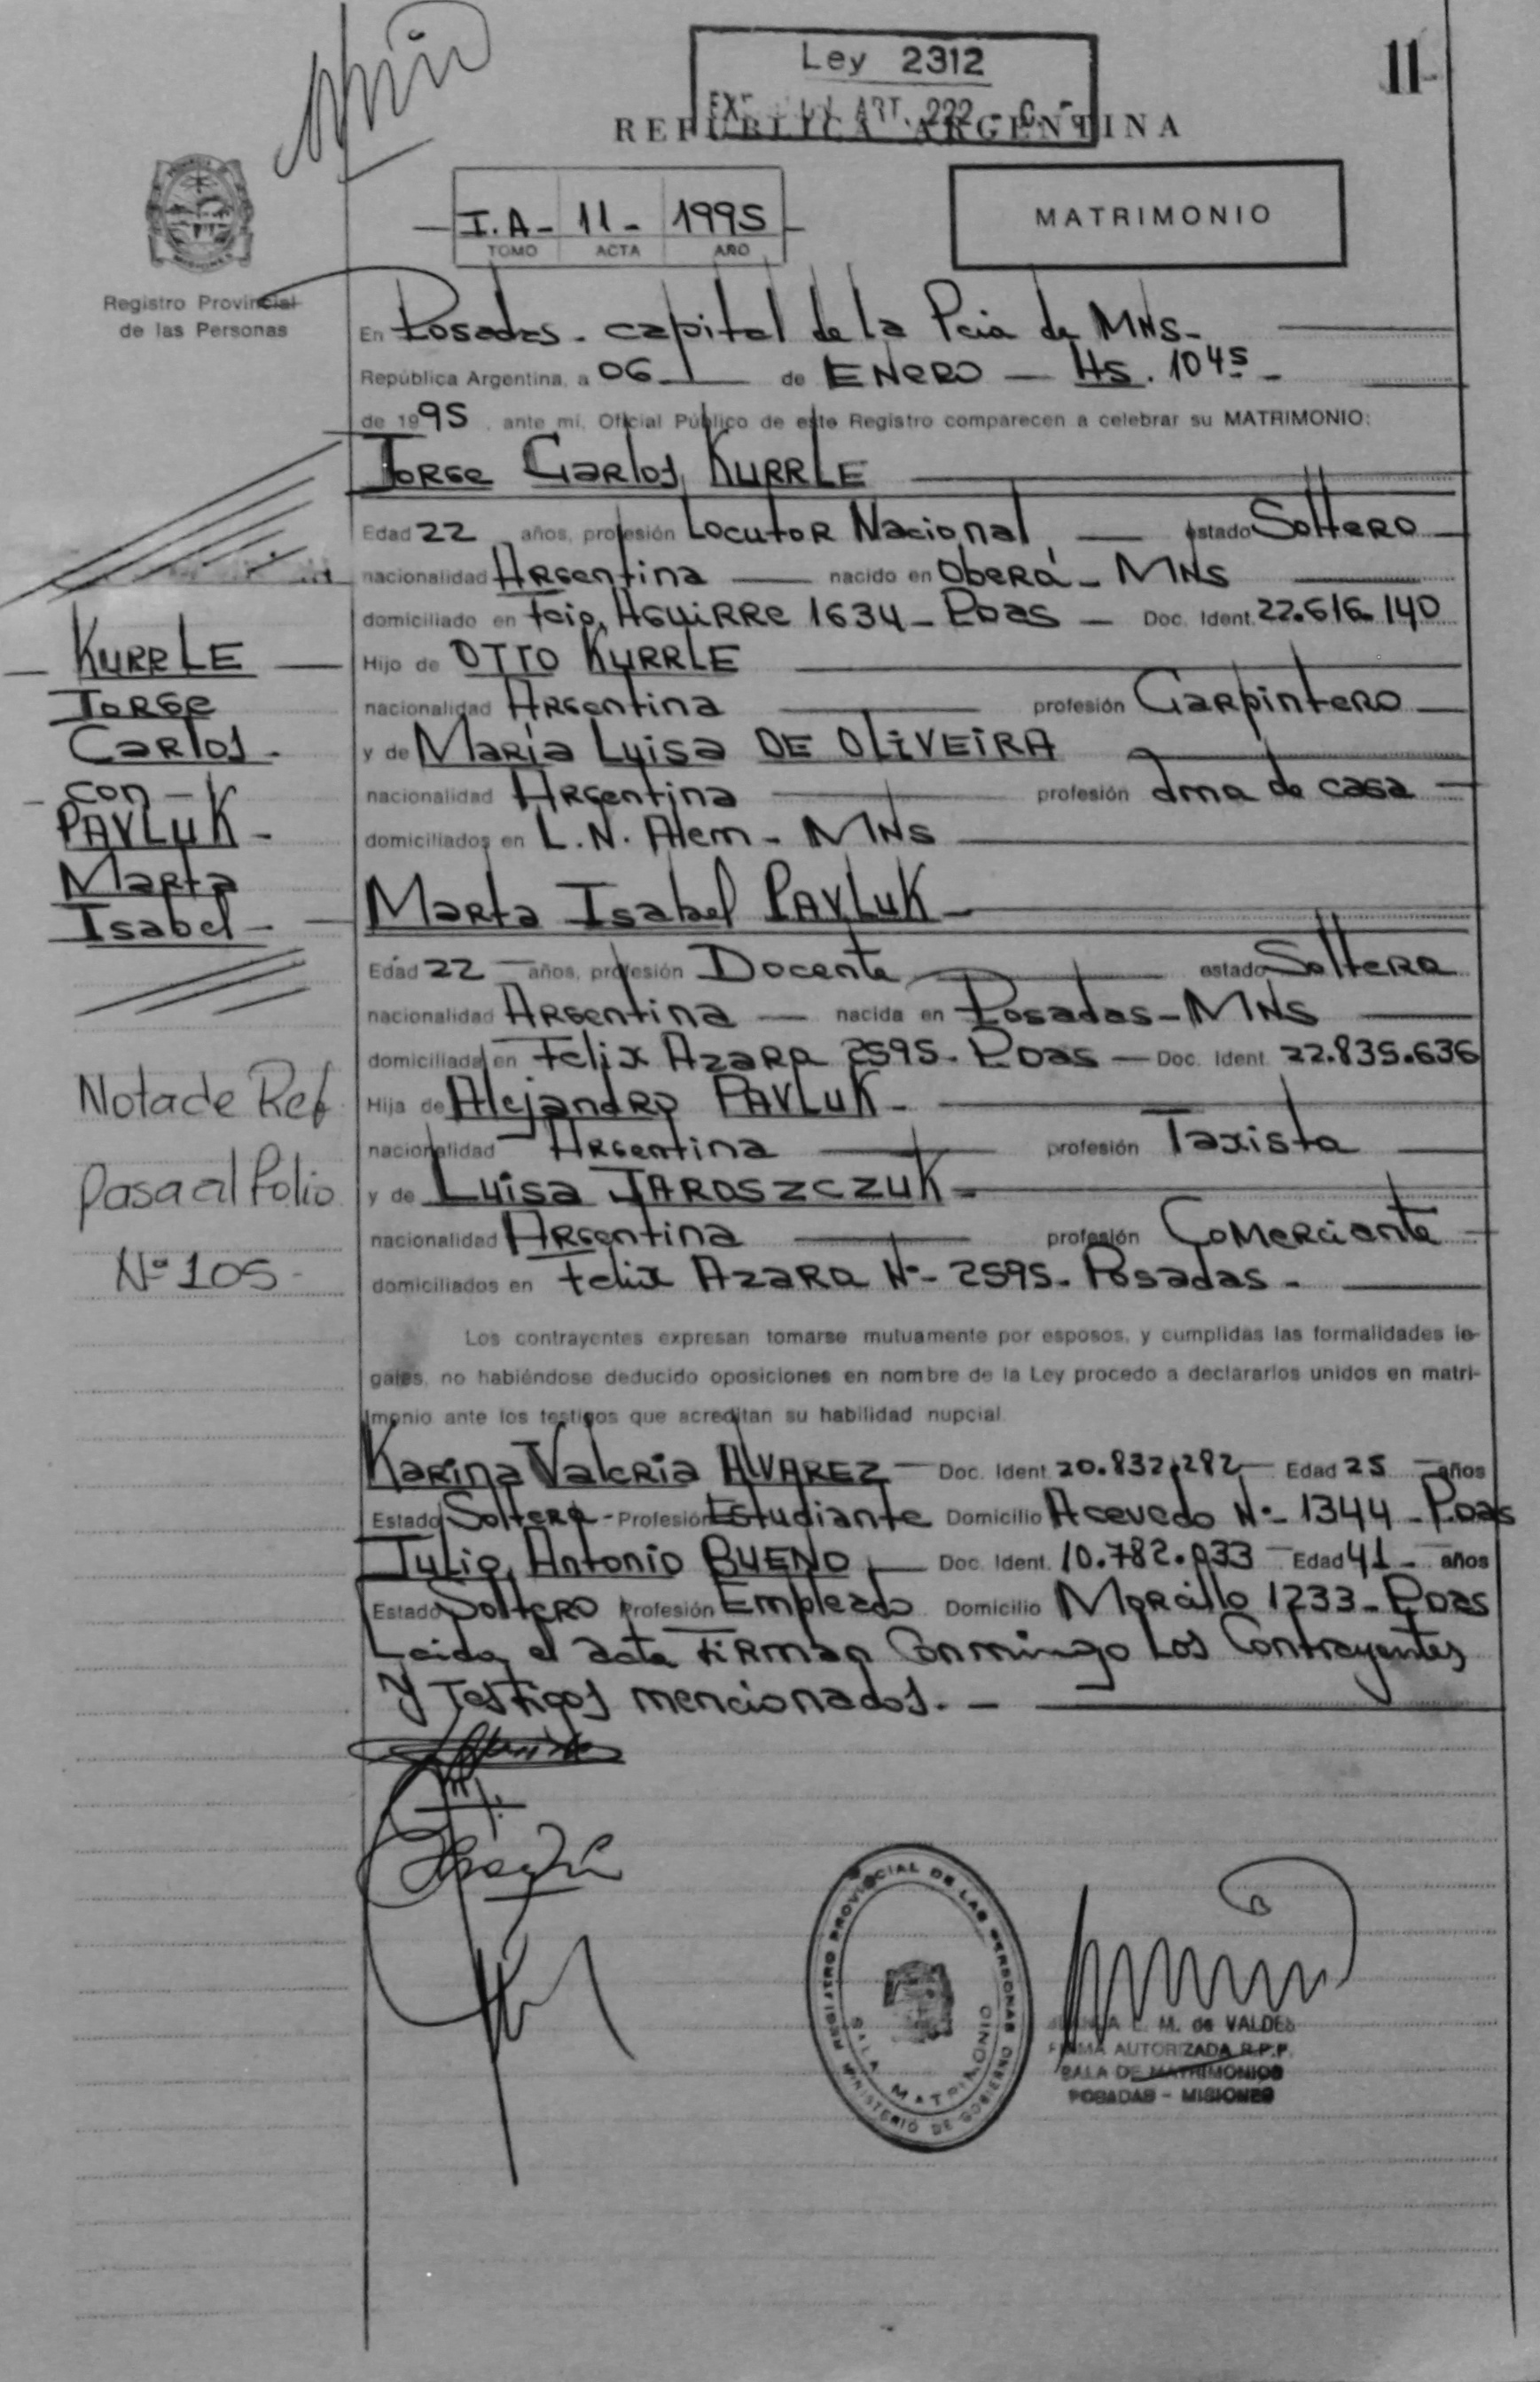 Ley 2312
ART. 222
11-
REPUBLICA ARGENTINA
I.A- 11- 1995
TOMO ACTA AÑO
MATRIMONIO
Registro Provincial
de las Personas
En Posadas - capital de la Pcia de MNS-
República Argentina, a 06 de ENERO - Hs. 10 45 -
de 1995, ante mi, Oficial Público de este Registro comparecen a celebrar su MATRIMONIO:
Jorge Carlos KURRLE
Edad 22 años, profesión Locutor Nacional estado Soltero
nacionalidad Argentina nacido en Oberá - MNS
domiciliado en Fcio. Aguirre 1634 - Pdas - Doc. Ident. 22.616.140
Hijo de OTTO KURRLE
nacionalidad Argentina profesión Carpintero
y de María Luisa DE OLIVEIRA
nacionalidad Argentina profesión ama de casa
domiciliados en L.N. Alem - MNS
KURRLE
Jorge
Carlos -
- con -
PAVLUK -
Marta
Isabel -
Marta Isabel PAVLUK -
Edad 22 - años, profesión Docente estado Soltera
nacionalidad Argentina - nacida en Posadas - MNS
domiciliada en Felix Azara 2595 - Pdas - Doc. Ident. 22.835.636
Hija de Alejandro PAVLUK -
nacionalidad Argentina profesión Taxista
y de Luisa JAROSZCZUK -
nacionalidad Argentina profesión Comerciante
domiciliados en Felix Azara Nº - 2595 - Posadas -
Nota de Ref
Pasa al Folio
Nº 105 -
Los contrayentes expresan tomarse mutuamente por esposos, y cumplidas las formalidades le-
gales, no habiéndose deducido oposiciones en nombre de la Ley procedo a declararlos unidos en matri-
monio ante los testigos que acreditan su habilidad nupcial.
Karina Valeria ALVAREZ - Doc. Ident. 20.832.282 - Edad 25 - años
Estado Soltera - Profesión Estudiante Domicilio Acevedo Nº - 1344 - Pdas
Julio Antonio BUENO - Doc. Ident. 10.782.033 - Edad 41 - años
Estado Soltero Profesión Empleado Domicilio Morcillo 1233 - Pdas
Leida el acta Firman Conmingo Los Contrayentes
Y Testigos mencionados. -
REGISTRO PROVINCIAL DE LAS PERSONAS
MINISTERIO DE GOBIERNO
SALA MATRIMONIO
M. de VALDES
FIRMA AUTORIZADA R.P.P.
SALA DE MATRIMONIOS
POSADAS - MISIONES